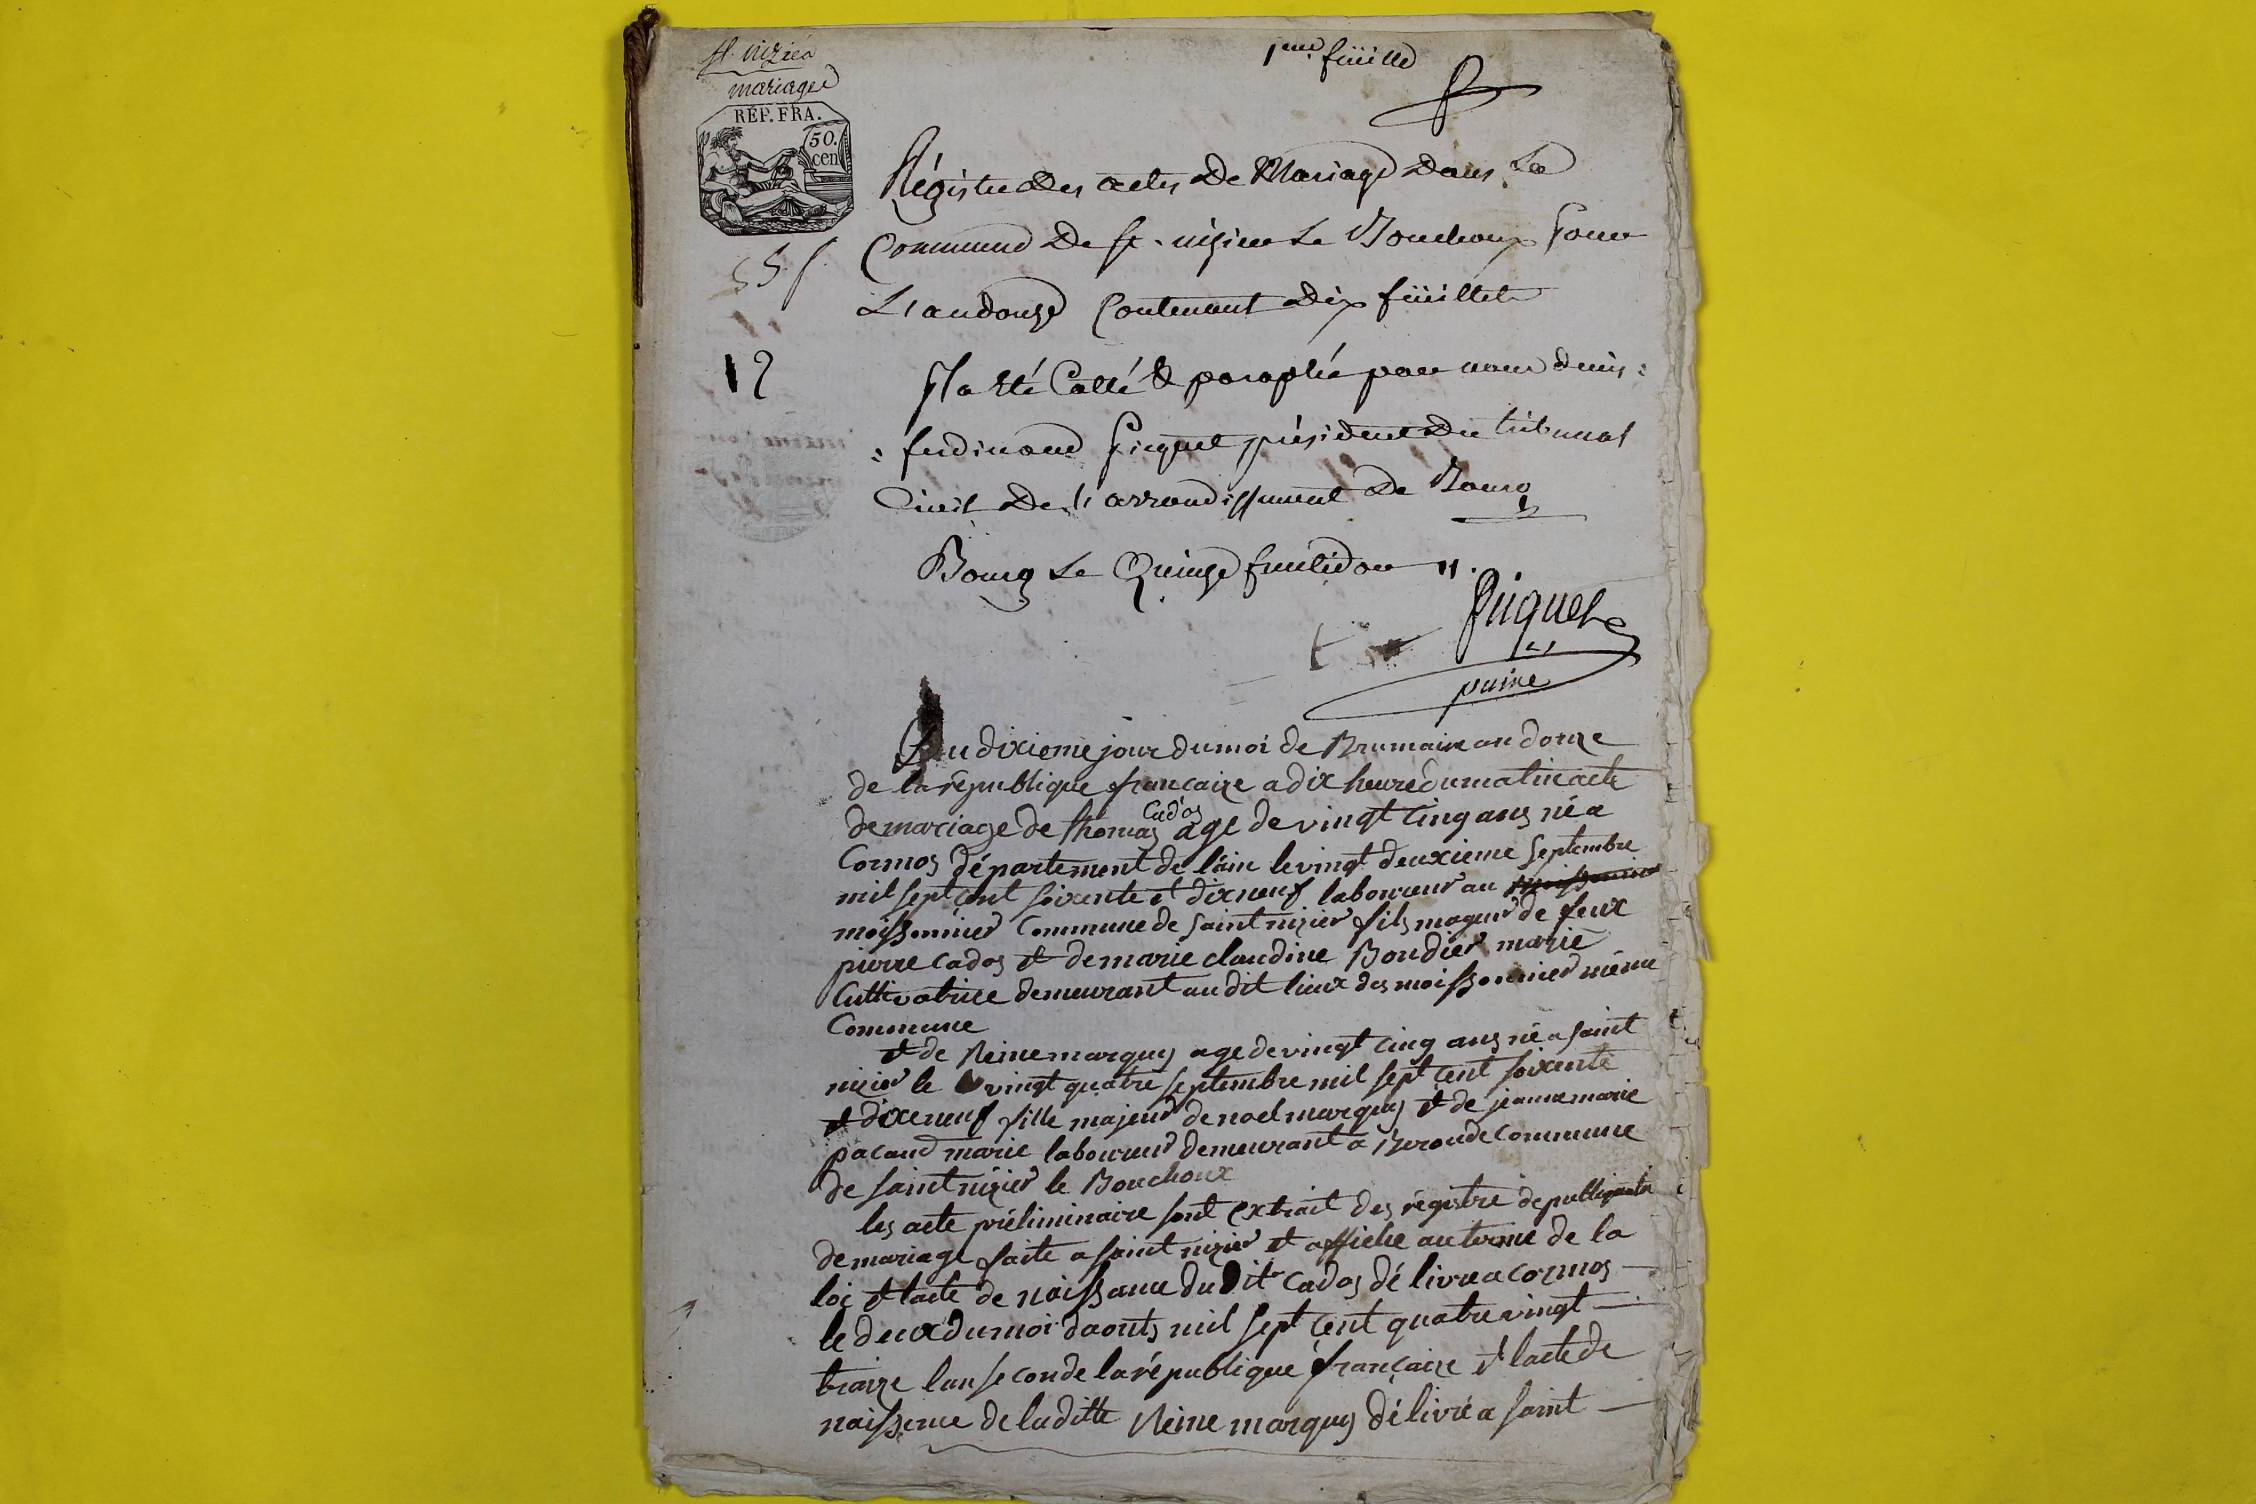 st. nizier
mariage
1ere feüille
RÉP. FRA.
50.
cen
Régistre des actes de Mariage dans La
Commune de st. nizier Le Bouchoux pour
L'an douze Contenant dix feüillets
12
Il a été Cotté & paraphé par nous denis=
=ferdinand Picquet président du tribunal
Civil de l'arrondissement de Bourg
Bourg Le Quinze fructidor 11.
Picquet
puiné
Du dixieme jour du moi de Brumaire an douze
de la république francaize a dix heure du matin acte
Cados
de mariage de thomas age de vingt cinq ans né a
Cormos département de lain le vingt deuxieme septembre
mil sept cent soixente et dixneuf laboureur au
moissonnier Commune de saint nizier fils mageur de feux
pierre Cados et de marie claudine Bondier marié
Cultivatrice demeurant au dit lieux des moissonnier même
Commune
et de Reine marguy age de vingt cinq ans né a saint
nizier le vingt quatre septembre mil sept cent soixente
et dixeneuf fille majeur de noel marguy et de jeanne marie
pacaud marie laboureur demeurant a Beronde commune
de saint nizier le Bouchoux
les acte préliminaire sont extrait des régistre de publiquation
de mariage faite a saint nizier et affiche au terme de la
loi et lacte de naissance du dit Cados délivre a cormos
le deux du moi daouts mil sept cent quatre vingt
traize lan seconde la république françaize et lacte de
naissence de laditte Reine marguy délivré a saint